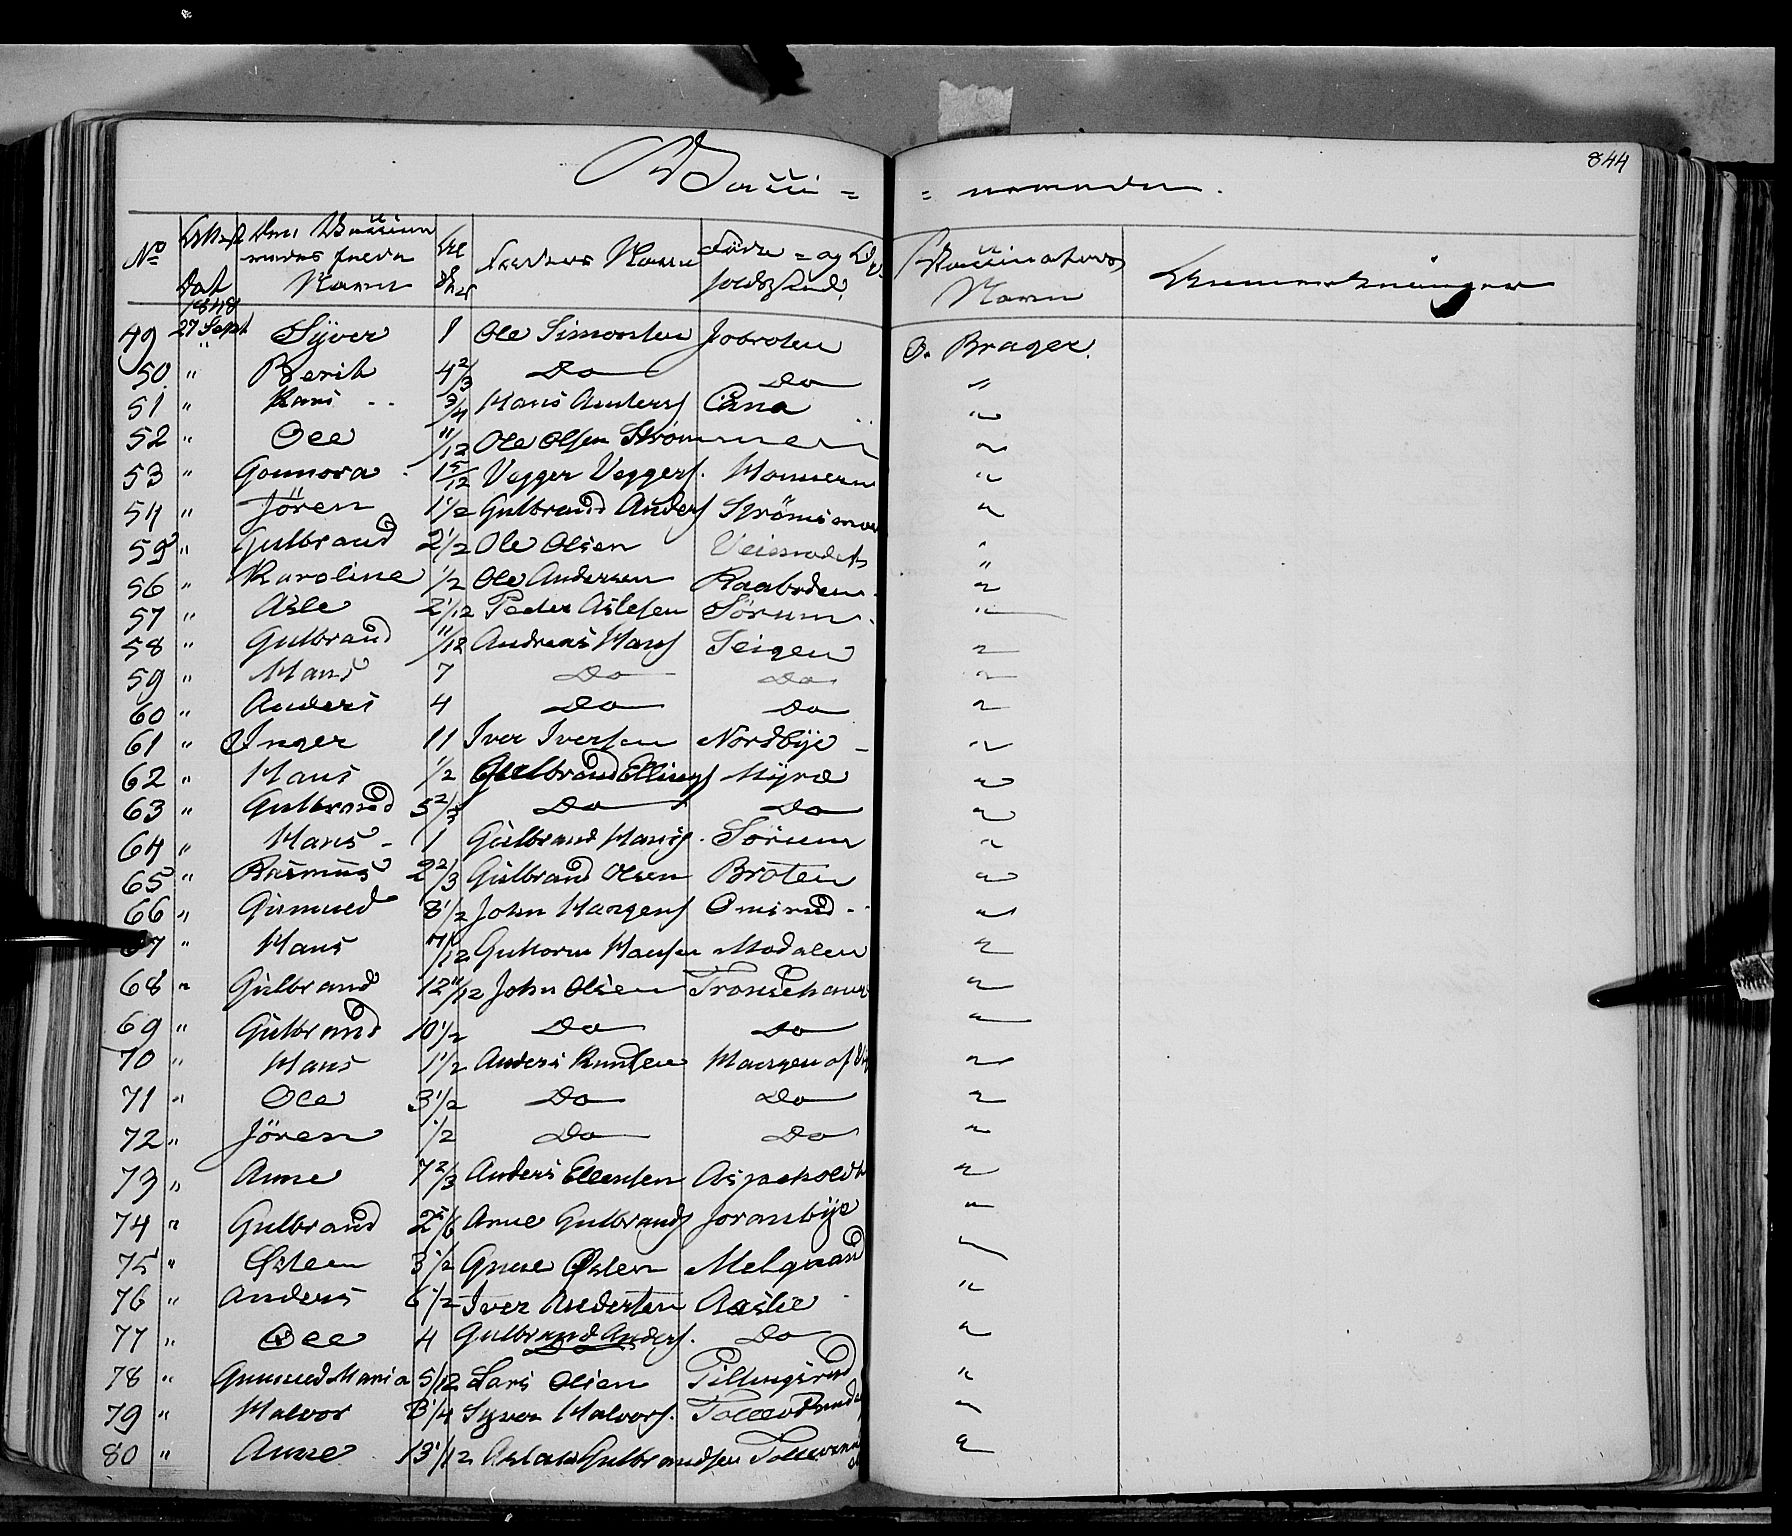 844
Vacci = = nerede.
No Dat Navn Faders Navn Vaccinateurs Navn Anmærkninger
1848
49 27 Sept " Syver 1 Ole Simonsen Jobroten O. Brager.
50 " Berit 4 2/3 Do Do "
51 " Kari 3/4 Hans Anders "
52 " Ole 11/12 Ole Olsen Strøm "
53 " Gonnora 1 5/12 Vegger Veggers. "
54 " Jören 1 1/2 Gulbrand Anders "
55 " Gulbrand 2 1/2 Ole Olsen "
56 " Karoline 1/2 Ole Andersen Raabroten "
57 " Asle 2 1/12 Peder Aslesen Sörum "
58 " Gulbrand 11/12 Andreas Hans Teigen "
59 " Hans 7 Do Do "
60 " Anders 4 Do Do "
61 " Inger 11 Iver Iversen Nordbye "
62 " Hans 1/2 Gulbrand Ellings Myra "
63 " Gulbrand 5 2/3 Do Do "
64 " Hans 1 Gulbrand Hans. Sörum "
65 " Rasmus 2 2/3 Gulbrand Olsen Broten "
66 " Gunued 8 1/2 John Hargens Omsrud "
67 " Hans 7/12 Guttorm Hansen Modalen "
68 " Gulbrand 12 11/12 John Olsen "
69 " Gulbrand 10 1/2 Do Do "
70 " Hans 1 1/2 Anders Knutsen "
71 " Ole 3 1/2 Do Do "
72 " Jören 1/2 Do Do "
73 " Anne 7 2/3 Anders Ellensen Aspeholdt "
74 " Gulbrand 2 5/6 Arne Gulbrands Joranbye "
75 " Østen 3 1/2 Østen "
76 " Anders 6 1/2 Iver Andersen Aslie "
77 " Ole 4 Gulbrand Anders. Do "
78 " Gunued Maria 5/12 Lars Olsen Pillingsrud "
79 " Halvor 3 1/4 Syver Halvors. "
80 " Anne 13 1/12 Aslak Gulbrandsen "